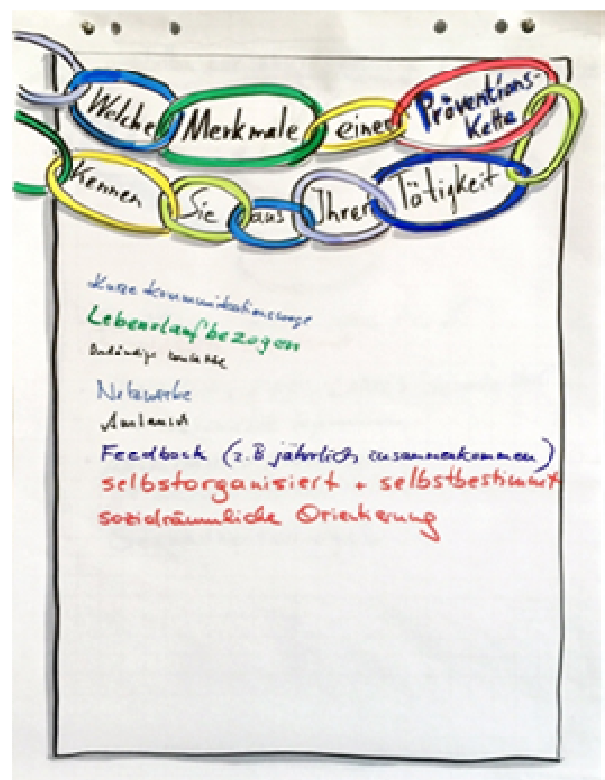 Welche Merkmale einer Präventions-
Kette
Kennen Sie aus Ihrer Tätigkeit
Kurze Kommunikationswege
Lebenslaufbezogen
Netzwerke
Austausch
Feedback (z.B jährlich zusammenkommen)
selbstorganisiert + selbstbestimmt
sozialräumliche Orientierung